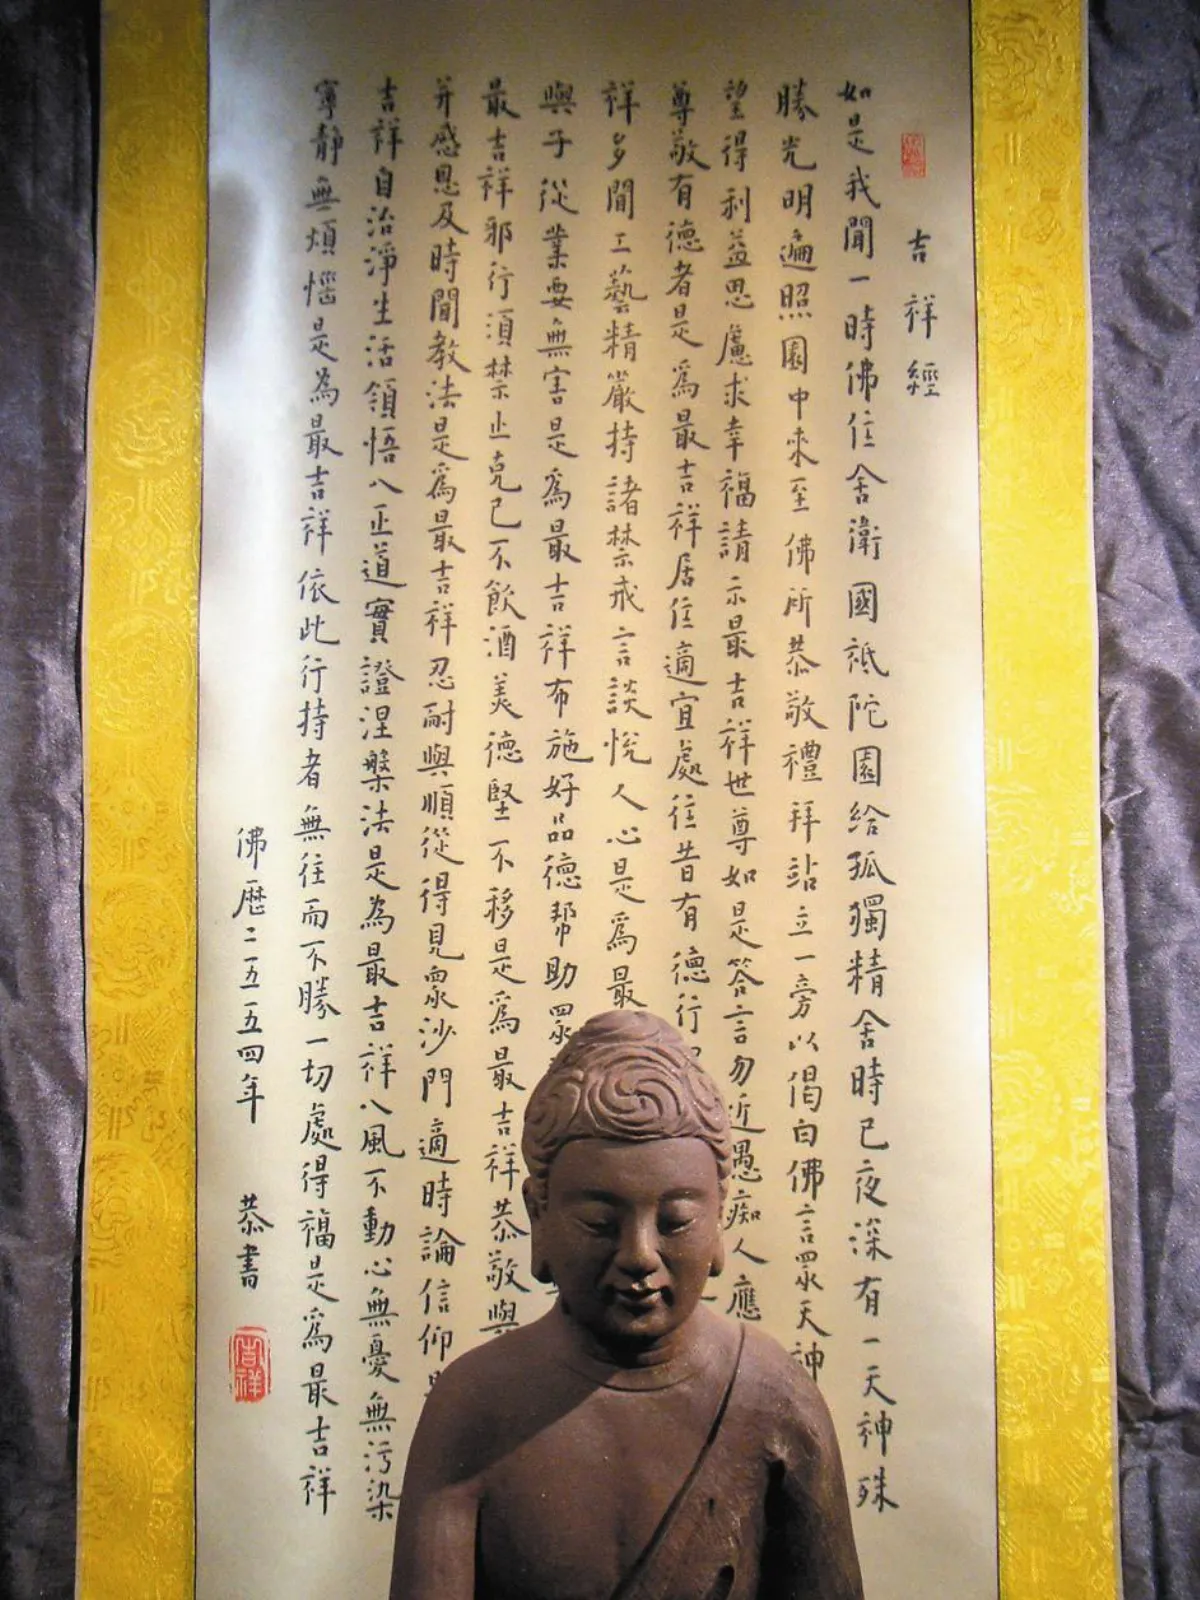 吉祥經
如是我聞一時佛住舍衛國祗陀園給孤獨精舍時已夜深有一天神殊
勝光明遍照園中來至佛所恭敬禮拜站立一旁以偈白佛言眾天神
望得利益思慮求幸福請示最吉祥世尊如是答言勿近愚痴人應
尊敬有德者是為最吉祥居住適宜處往昔有德行
祥多聞工藝精嚴持諸禁戒言談悅人心是為最
與子從業要無害是為最吉祥布施好品德幫助眾
最吉祥邪行須禁止克己不飲酒美德堅不移是為最吉祥恭敬與
并感恩及時聞教法是為最吉祥忍耐與順從得見眾沙門適時論信仰
吉祥自治淨生活領悟八正道實證涅槃法是為最吉祥八風不動心無憂無污染
寧靜無煩惱是為最吉祥依此行持者無往而不勝一切處得福是為最吉祥
佛曆二五五四年 恭書
吉祥